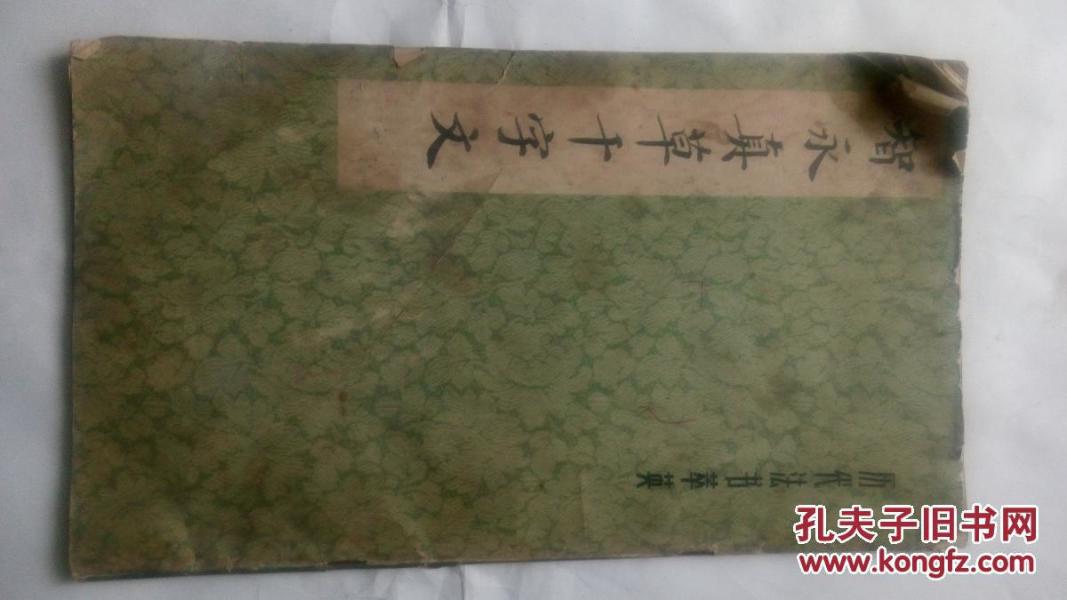 智永真草千字文
历代法书萃英
孔夫子旧书网
www.kongfz.com